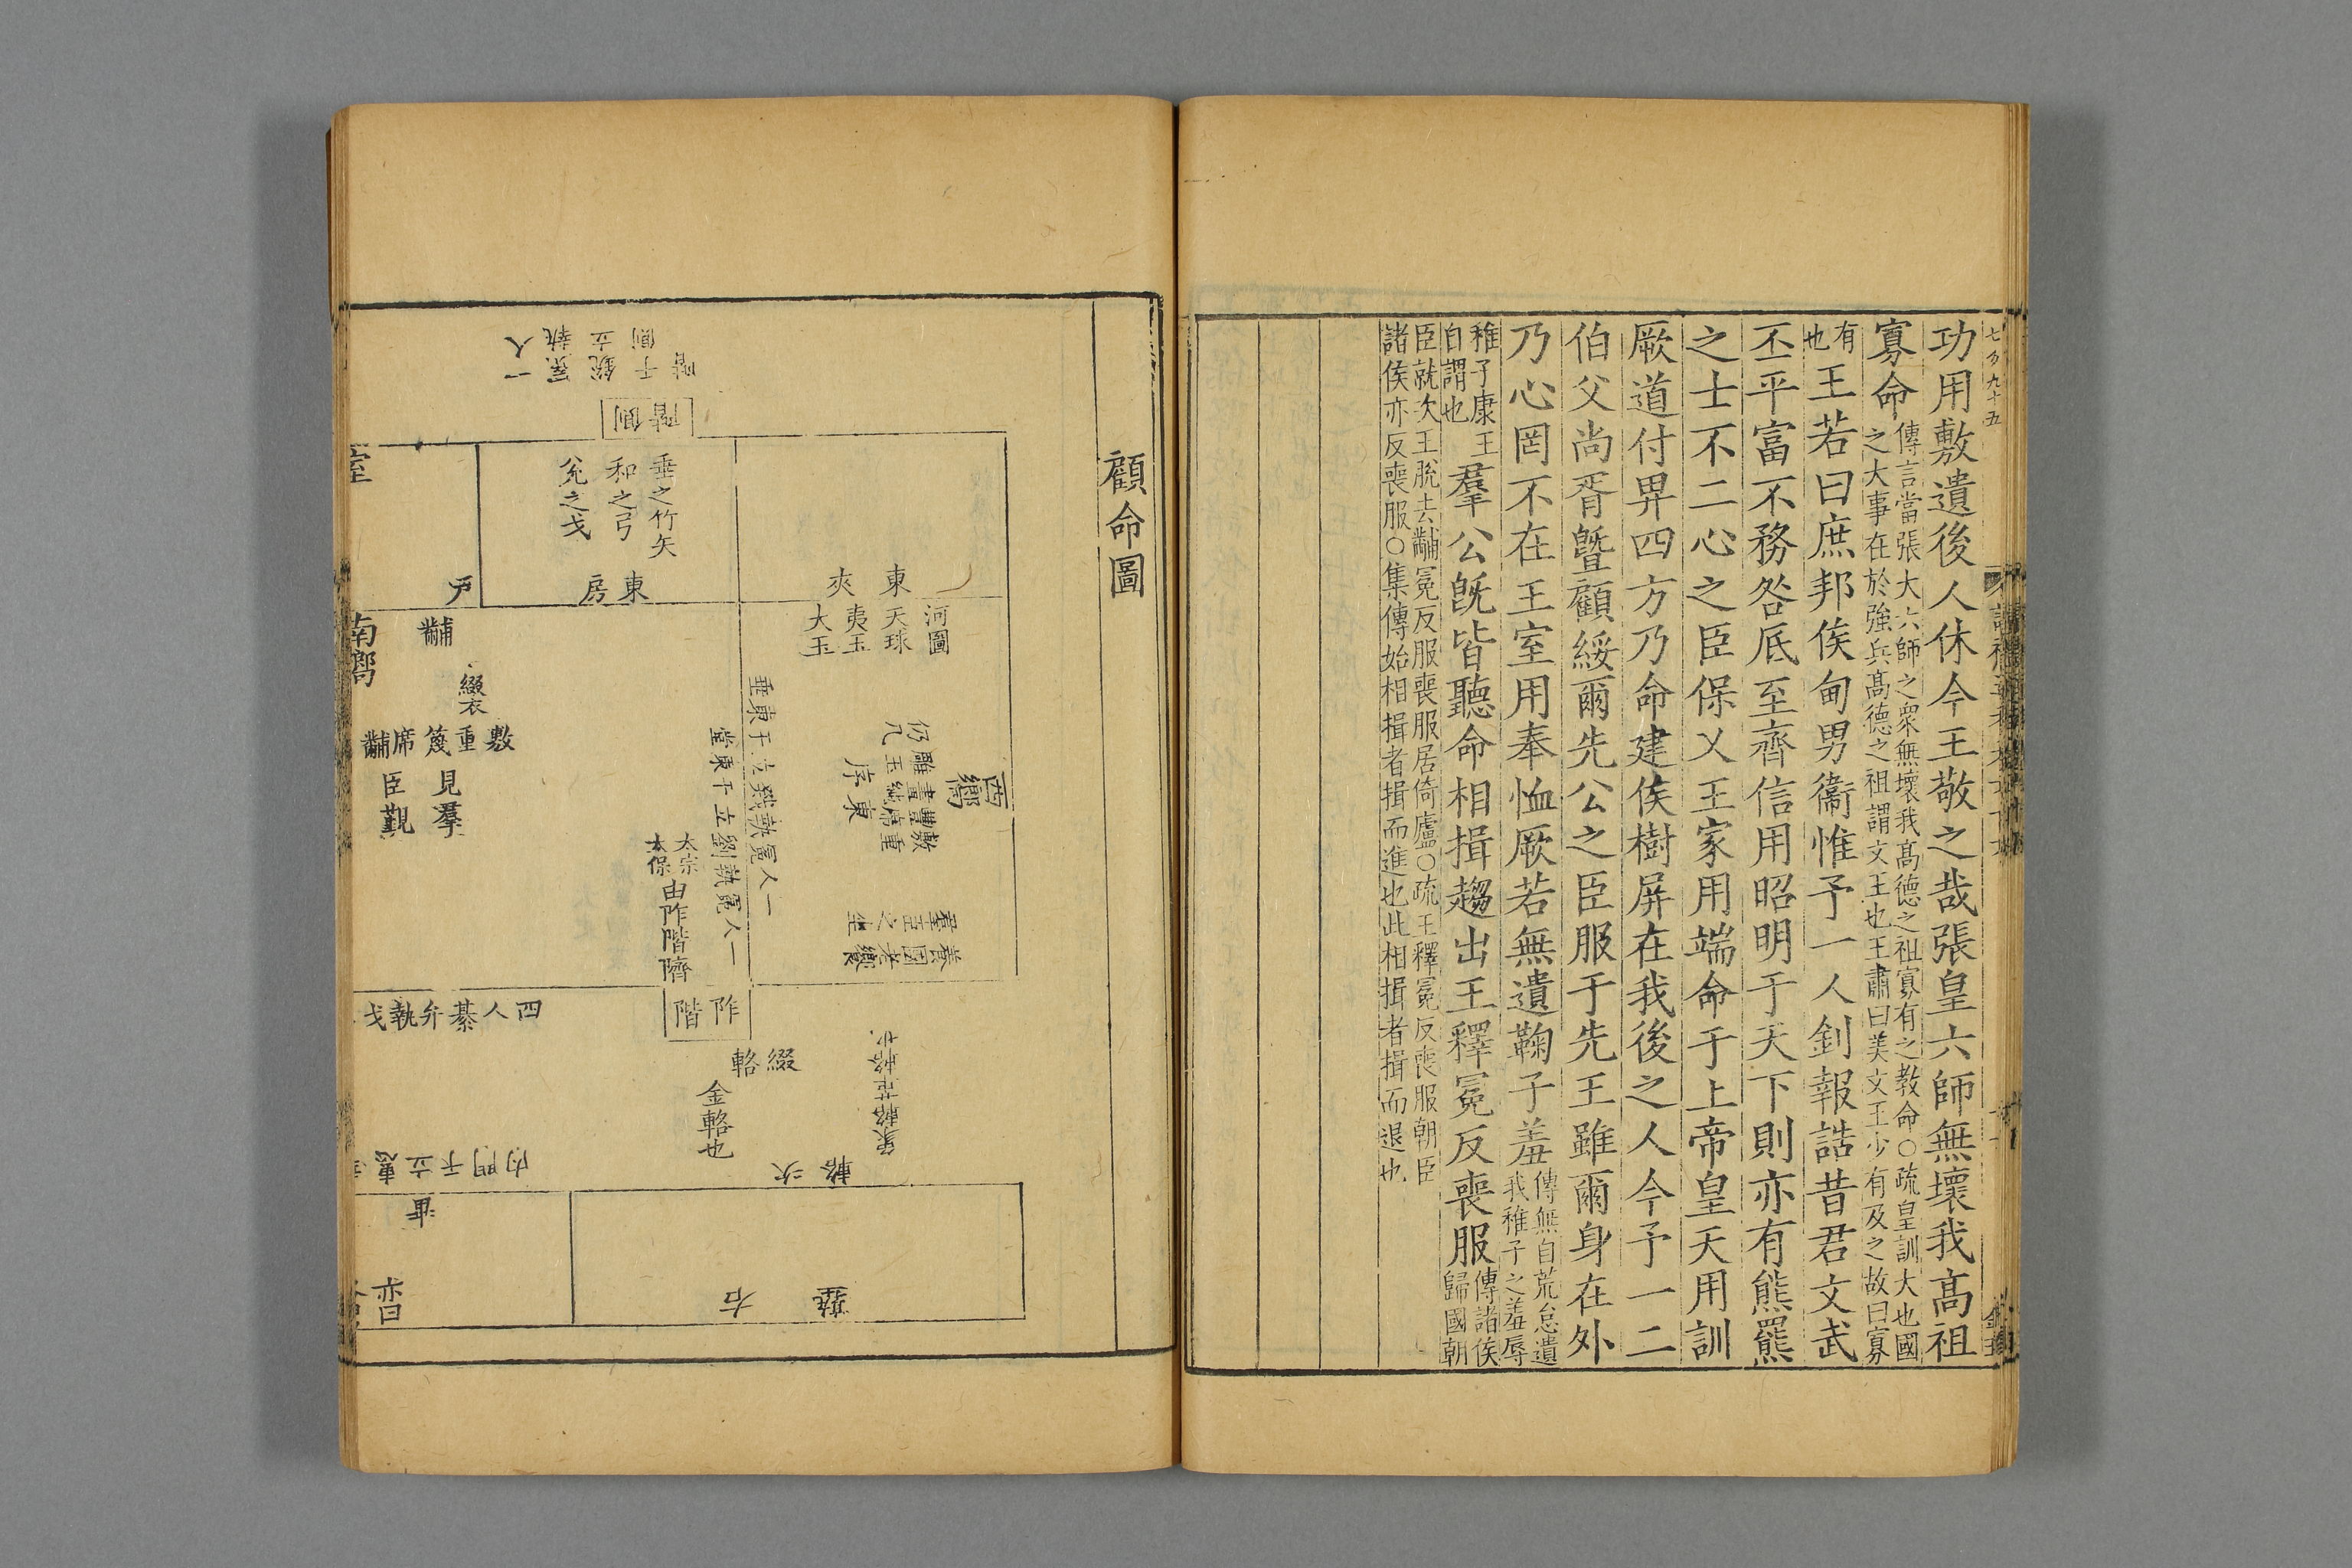 七百九十五
功用敷遺後人休今王敬之哉張皇六師無壞我高祖
寡命傳言當張大六師之衆無壞我高德之祖寡有之教命○疏皇訓大也國
之大事在於強兵高德之祖謂文王也王肅曰美文王少有及之故曰寡
有
也
王若曰庶邦侯甸男衞惟予一人釗報誥昔君文武
丕平富不務咎厎至齊信用昭明于天下則亦有熊羆
之士不二心之臣保乂王家用端命于上帝皇天用訓
厥道付畀四方乃命建侯樹屏在我後之人今予一二
伯父尚胥曁顧綏爾先公之臣服于先王雖爾身在外
乃心罔不在王室用奉恤厥若無遺鞠子羞傳無自荒怠遺
我稚子之羞辱
稚子康王
自謂也
羣公旣皆聽命相揖趨出王釋冕反喪服傳諸侯
歸國朝
臣就次王脫去黼冕反服喪服居倚廬○疏王釋冕反喪服朝臣
諸侯亦反喪服○集傳始相揖者揖而進也此相揖者揖而退也
顧命圖
一人冕執銳立于側階
側階
垂之竹矢
和之弓
兊之戈
東房
東夾
河圖
天球
夷玉
大玉
室
戶
南嚮
黼
綴衣
敷重篾席黼
見羣
臣覲
西嚮
敷重豐席畫純雕玉仍几
東序
養國老饗
羣臣之坐
一人冕執戣立于東垂
一人冕執劉立于東堂
太宗
太保
由阼階隮
阼階
四人綦弁執戈
綴輅
金輅也
象輅
次輅
右塾